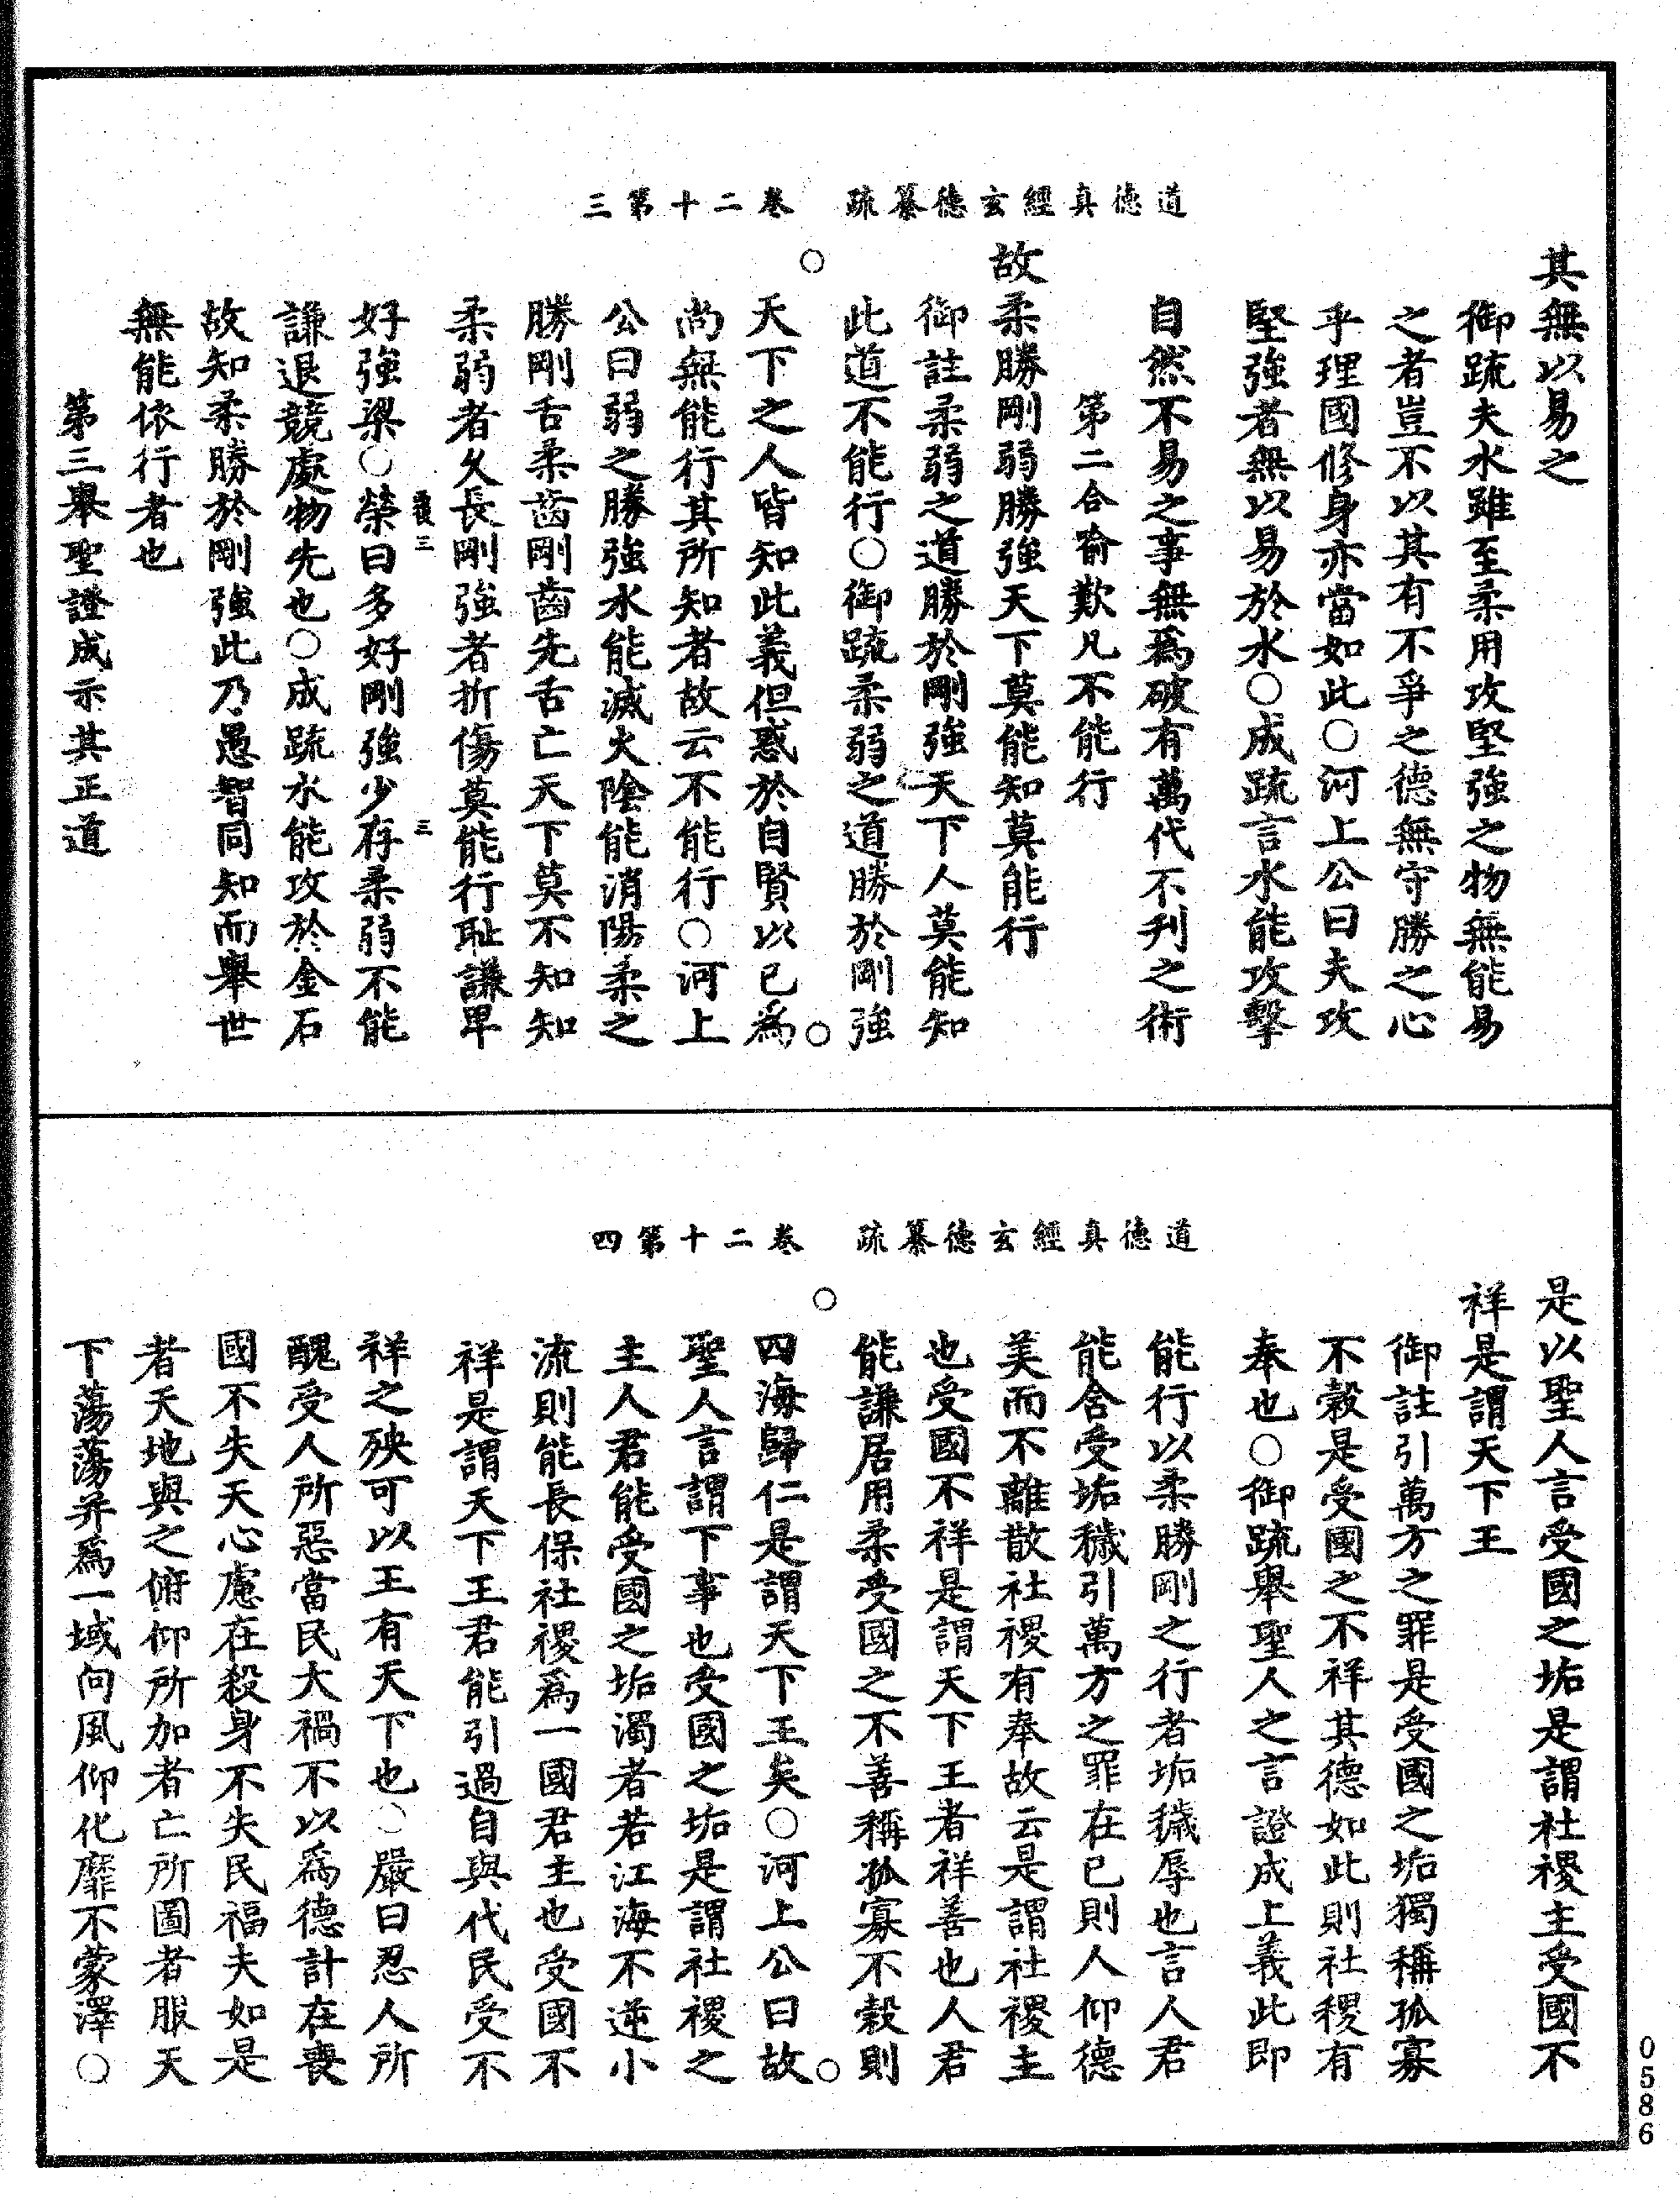 道德真經玄德纂疏　卷二十第三
其無以易之
御疏夫水雖至柔用攻堅強之物無能易
之者豈不以其有不爭之德無守勝之心
乎理國修身亦當如此○河上公曰夫攻
堅強者無以易於水○成疏言水能攻擊
自然不易之事無為破有萬代不刋之術
第二合喻歎凡不能行
故柔勝剛弱勝強天下莫能知莫能行
御註柔弱之道勝於剛強天下人莫能知
此道不能行○御疏柔弱之道勝於剛強
天下之人皆知此義但惑於自賢以已為
尚無能行其所知者故云不能行○河上
公曰弱之勝強水能滅火陰能消陽柔之
勝剛舌柔齒剛齒先舌亡天下莫不知知
柔弱者久長剛強者折傷莫能行耻謙卑
好強梁○榮曰多好剛強少存柔弱不能
謙退競處物先也○成疏水能攻於金石
故知柔勝於剛強此乃愚智同知而舉世
無能依行者也
第三舉聖證成示其正道
道德真經玄德纂疏　卷二十第四
是以聖人言受國之垢是謂社稷主受國不
祥是謂天下王
御註引萬方之罪是受國之垢獨稱孤寡
不榖是受國之不祥其德如此則社稷有
奉也○御疏舉聖人之言證成上義此即
能行以柔勝剛之行者垢穢辱也言人君
能含受垢穢引萬方之罪在已則人仰德
美而不離散社稷有奉故云是謂社稷主
也受國不祥是謂天下王者祥善也人君
能謙居用柔受國之不善稱孤寡不榖則
四海歸仁是謂天下王矣○河上公曰故
聖人言謂下事也受國之垢是謂社稷之
主人君能受國之垢濁者若江海不逆小
流則能長保社稷為一國君主也受國不
祥是謂天下王君能引過自與代民受不
祥之殃可以王有天下也○嚴曰忍人所
醜受人所惡當民大禍不以為德計在喪
國不失天心慮在殺身不失民福夫如是
者天地與之俯仰所加者亡所圖者服天
下蕩蕩并為一域向風仰化靡不蒙澤○
0586